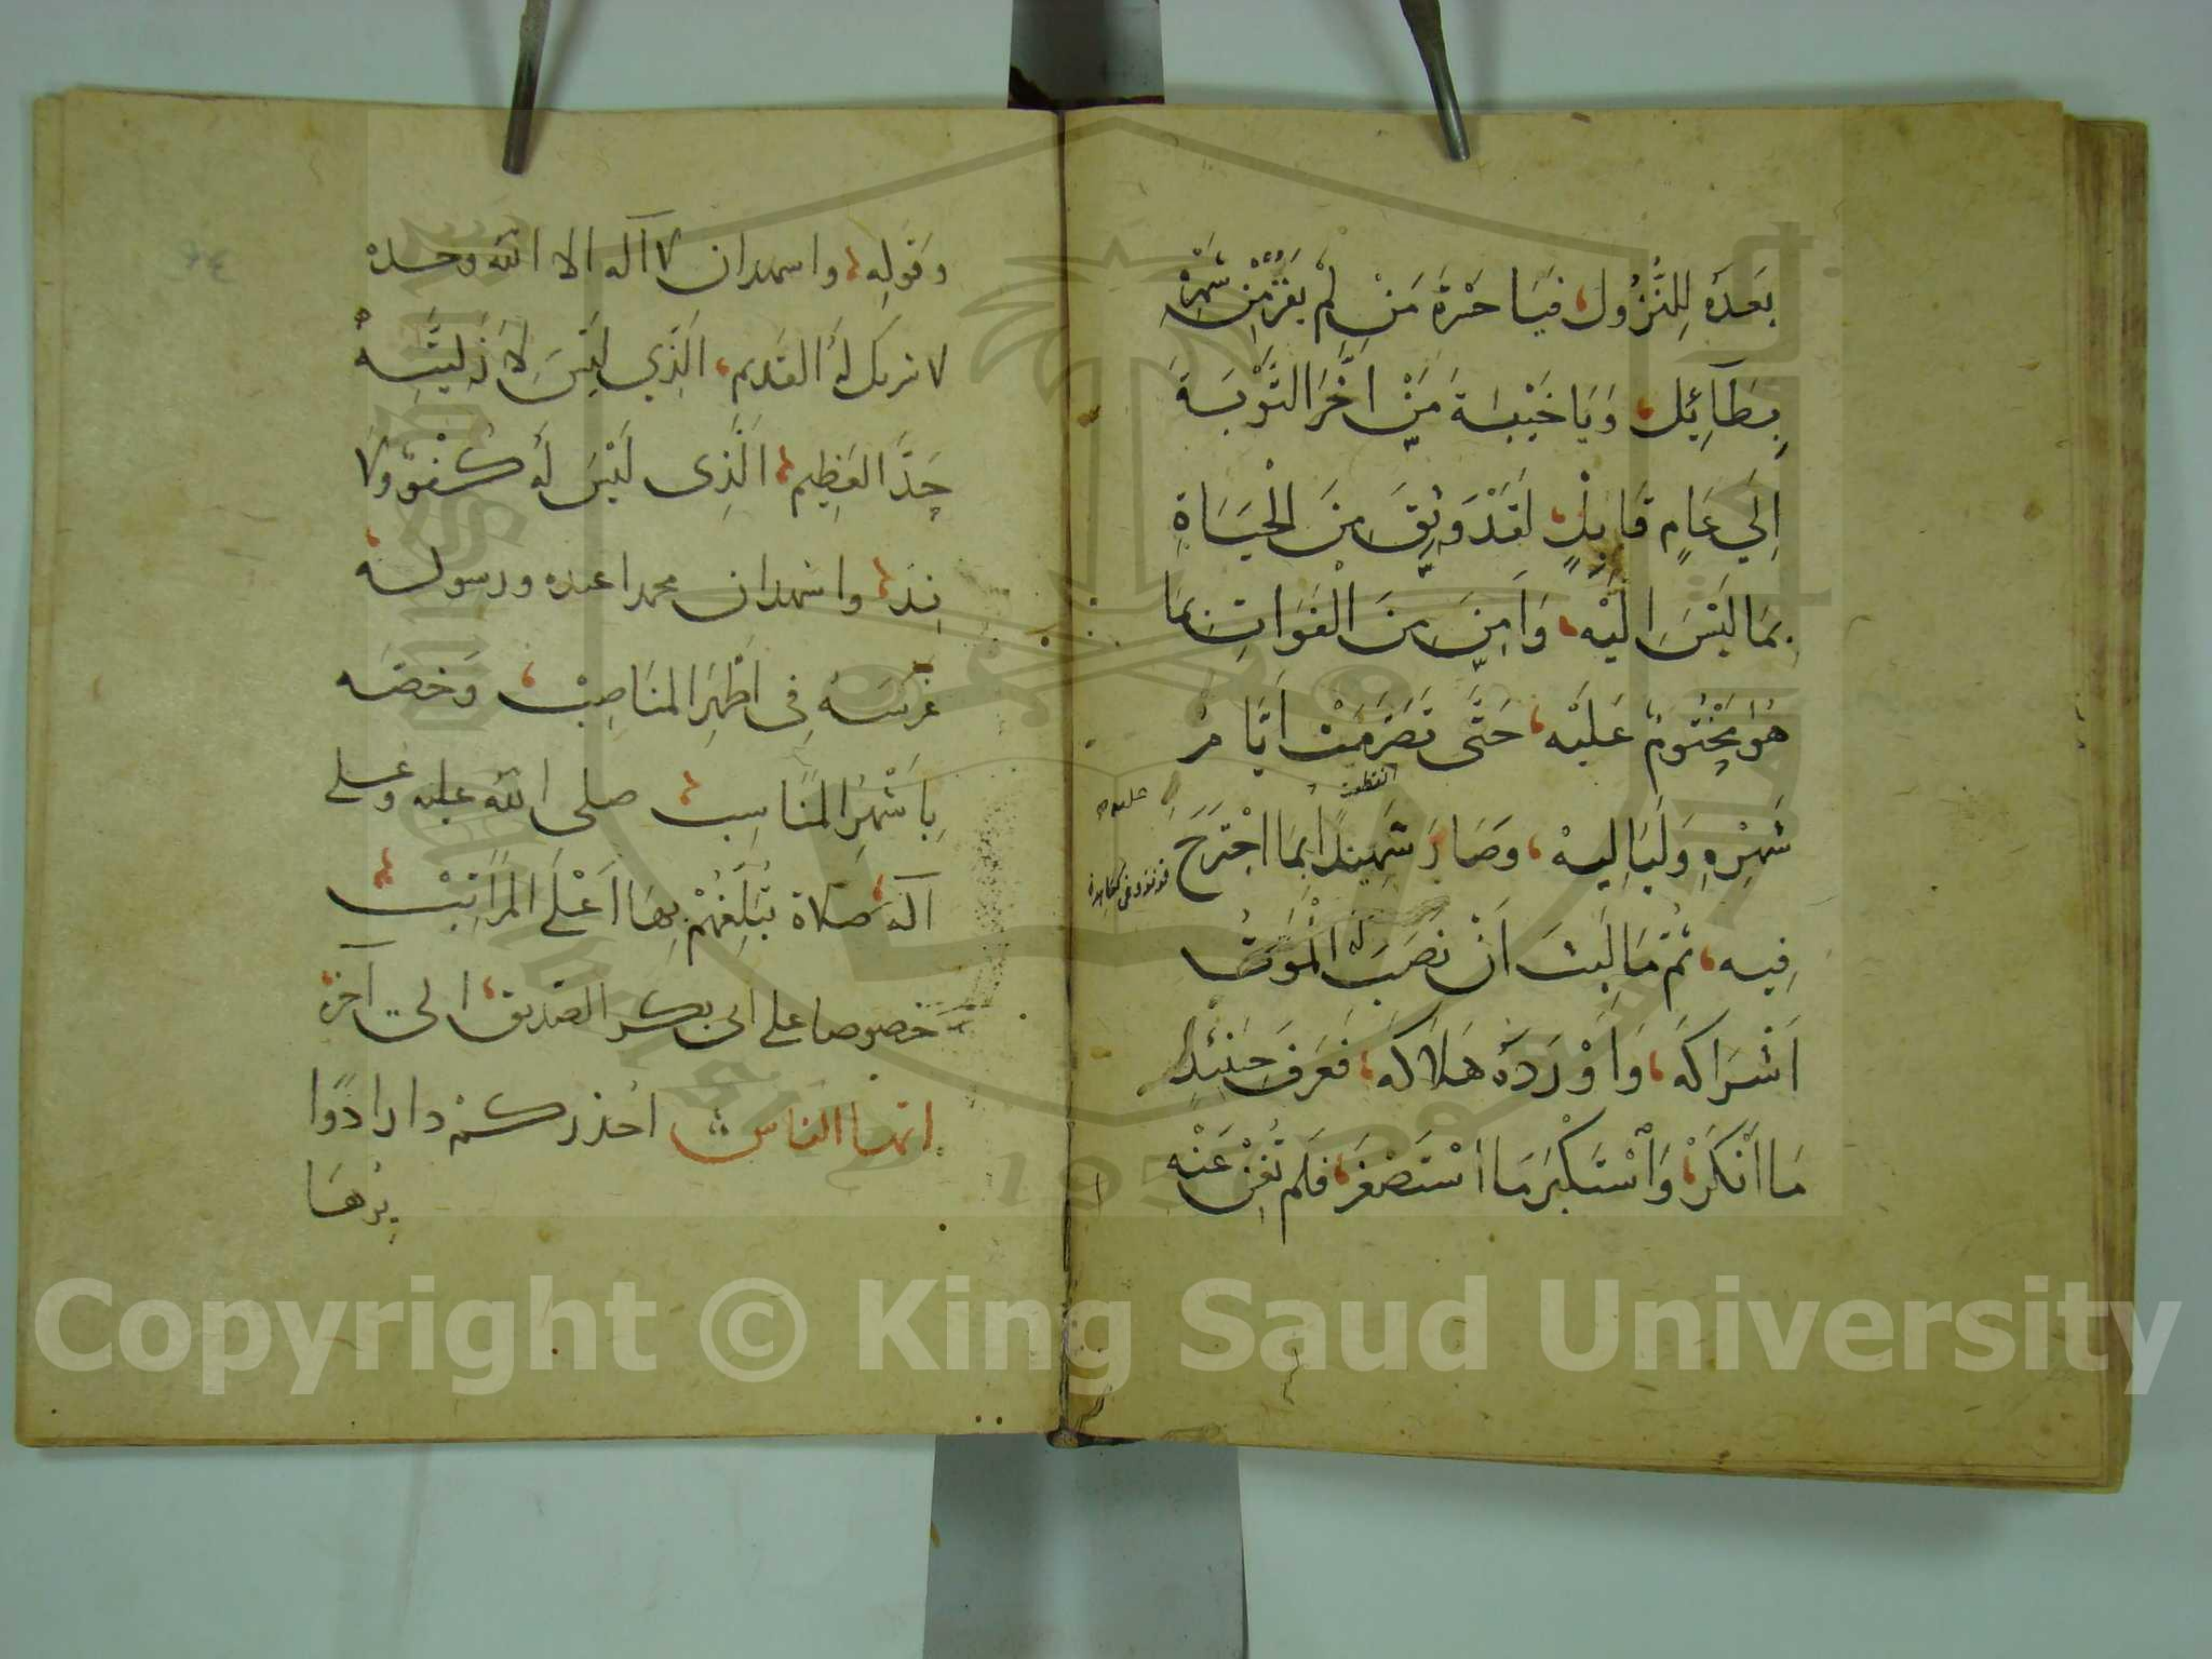 بَعْدَهُ لِلنُّزُولِ، فَيَا حَسْرَةَ مَنْ لَمْ يَفُزْ مِنْ شَهْرِهِ
بِطَآئِلٍ، وَيَا خَيْبَةَ مَنْ اَخَّرَ التَّوْبَةَ
اِلَي عَامٍ قَابِلٍ، لَقَدْ وَثِقَ مِنَ الْحَيَاةِ
بِمَا لَيْسَ اِلَيْهِ، وَاَمِنَ مِنَ الْفَوَاتِ بِمَا
هُوَ مَحْتُومٌ عَلَيْهِ، حَتَّى تَصَرَّمَتْ اَيَّامُ
انقطعت
شَهْرِهِ وَلَيَالِيهْ، وَصَارَ شَهِيدًا بِمَا اجْتَرَحَ
عليه
فِيهِ، ثُمَّ مَا لَبِثَ اَنْ نَصَبَ لَهُ الْمَوْتُ
اَشْرَاكَهُ، وَاَوْرَدَهُ هَلَاكَهُ، فَعَرَفَ حِينَئِذٍ
مَا اَنْكَرَ، وَاَسْتَكْبَرَ مَا اسْتَصْغَرَ، فَلَمْ تُغْنِ عَنْهُ
وَقَوْلِهِ، واشهد ان لا اله الا الله وحده
لا شريك له القديم، الَّذِي لَيْسَ لِاَزَلِيَّتِهِ
حَدٌّ العَظِيمِ، الَّذِى لَيْسَ لَهُ كُفْوٌ وَلَا
نِدٌّ، واشهد ان محمدا عبده ورسوله
غَرَسَهُ فِي اَطْهَرِ المَنَاصِبْ، وَخَصَّه
بِاَشْهَرِ المَنَاسِبْ، صلى الله عليه وعلى
آله، صَلاة تُبَلِّغُهُمْ بِهَا اَعْلَى المَرَاتِبْ،
خصوصا على ابى بكر الصديق، الى آخره
ايها الناس احذركم دارا دَوَّا
Copyright © King Saud University
1957